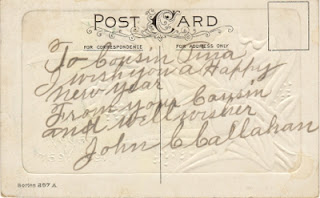 POST CARD
FOR CORRESPONDENCE
FOR ADDRESS ONLY
To Cousin Tina
I wish you a Happy
new year
From your Cousin
and well wisher
John C Callahan
Series 207 A